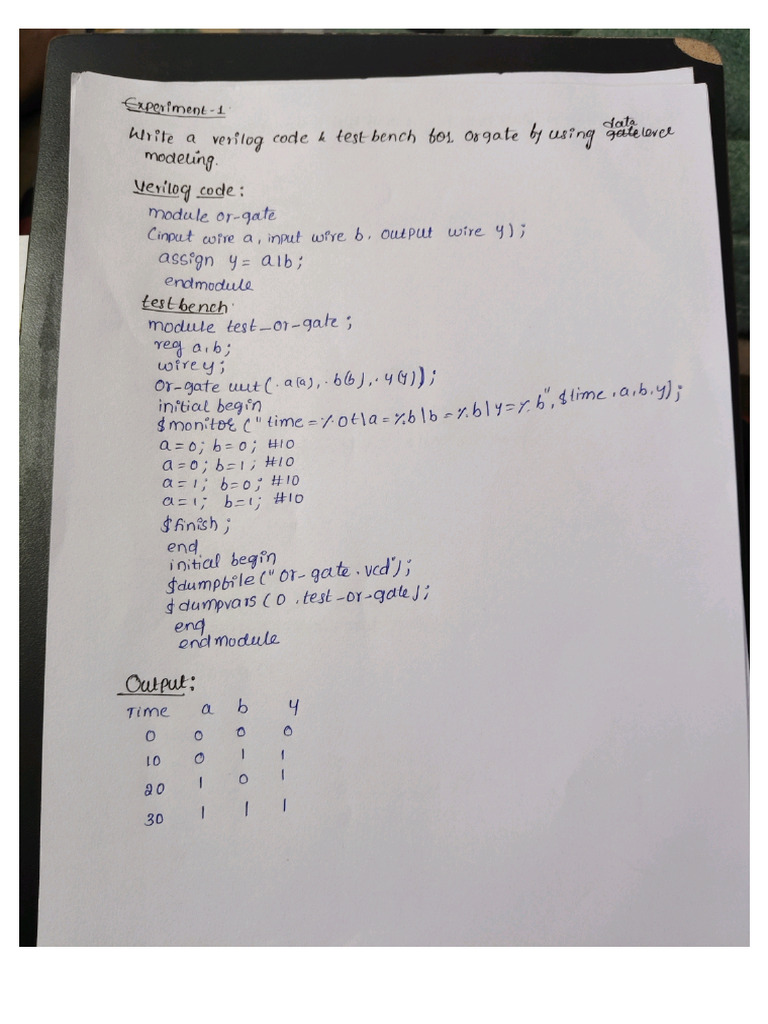 Experiment-1
Write a verilog code & test bench for or gate by using data level
modeling.
Verilog code:
module or-gate
(input wire a, input wire b, output wire y);
assign y = a|b;
endmodule
testbench
module test_or-gate;
reg a,b;
wire y;
or-gate uut(.a(a), .b(b), .y(y));
initial begin
$monitor("time=%0t|a=%b|b=%b|y=%b", $time, a,b,y);
a=0; b=0; #10
a=0; b=1; #10
a=1; b=0; #10
a=1; b=1; #10
$finish;
end
initial begin
$dumpfile("or-gate.vcd");
$dumpvars(0, test_or-gate);
end
endmodule
Output:
Time a b y
0 0 0 0
10 0 1 1
20 1 0 1
30 1 1 1